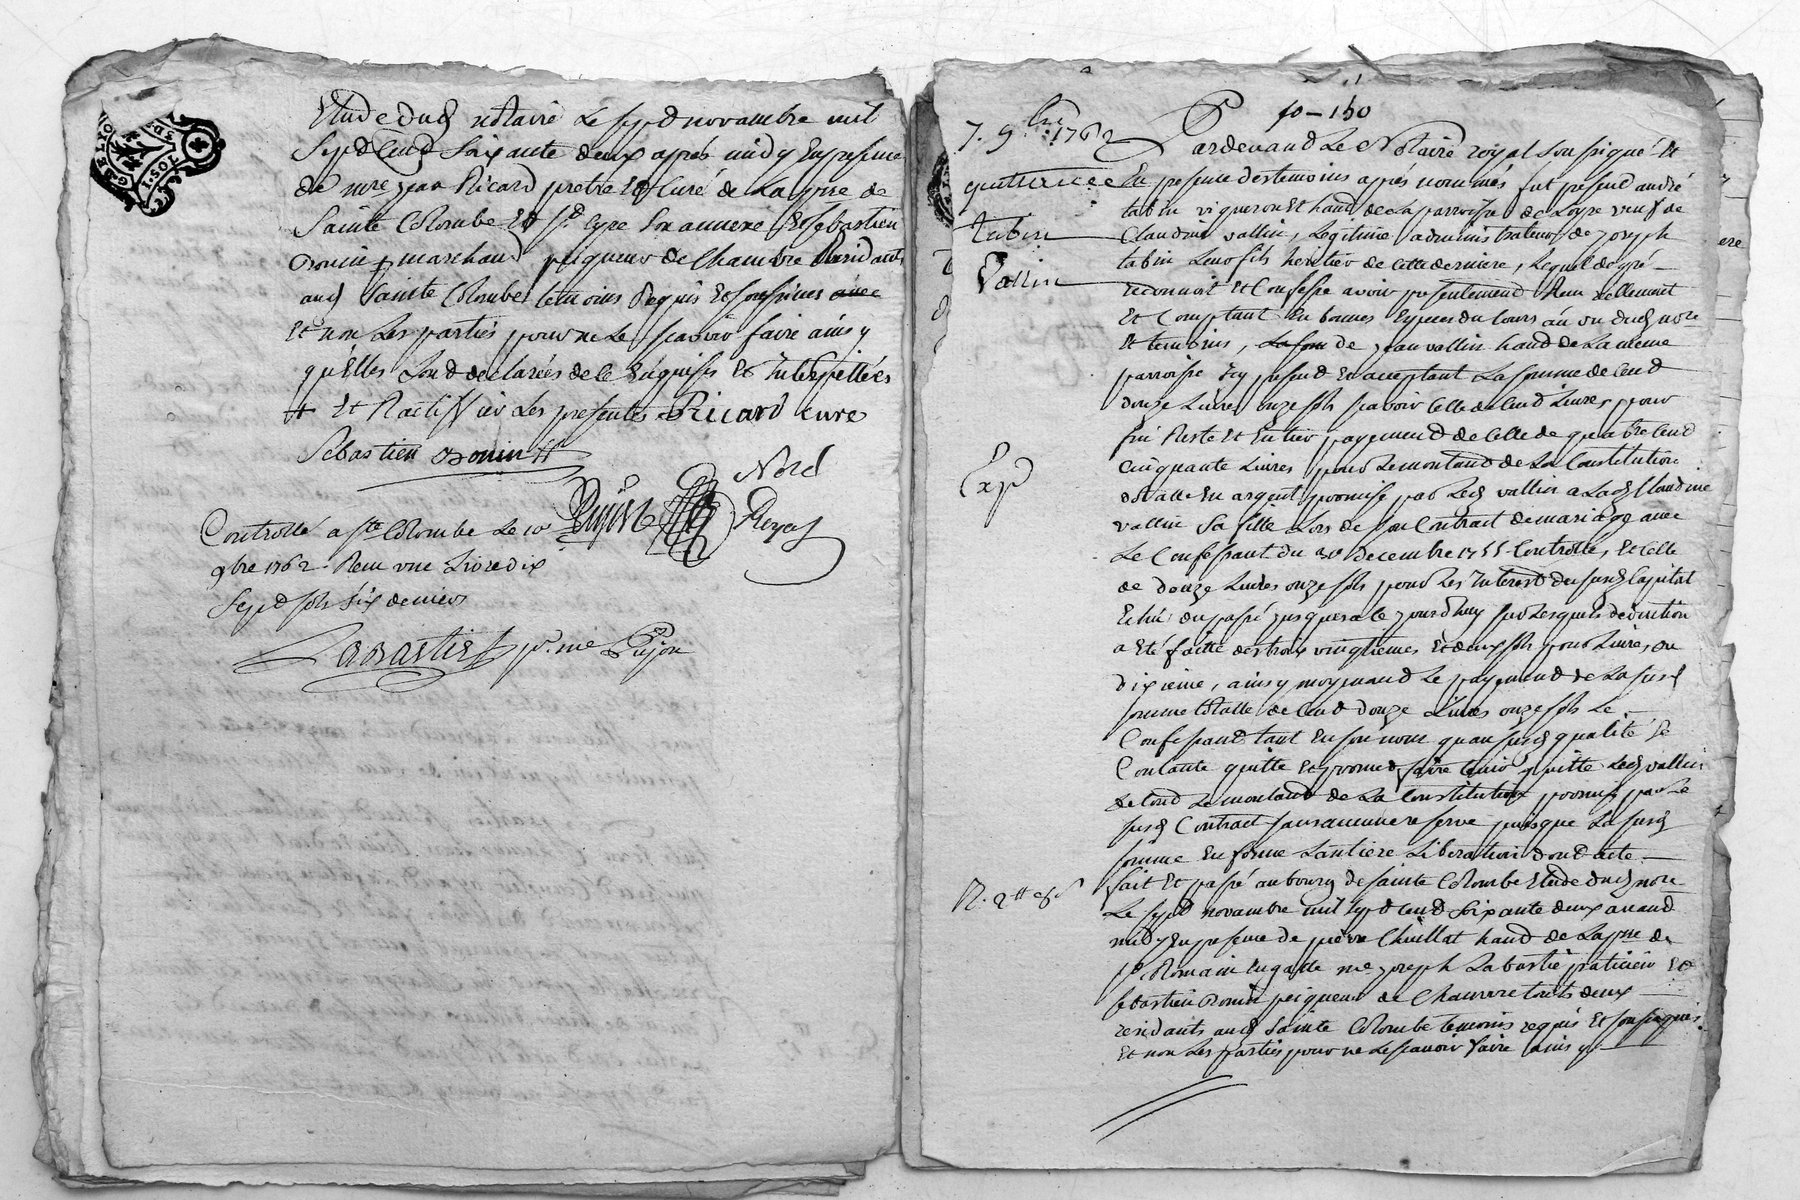 Etude dud notaire Le sept novembre mil
Sept Cend Soixante deux apres midy En presence
de mre jean Ricard pretre Et Curé de La psse de
Sainte Colombe Et St Cyre son annexe Et Sebastien
marchand peigneur de Chambre Residants
aud Sainte Colombe temoins Requis Et soussignes avec
Et non Les parties pour ne Le scavoir faire ainsy
qu'Elles Sont declarées de ce Enquises Et Interpellées
+ Et Ratiffier Les presentes Ricard curé
Sebastien
Nore
Pujon Royal
Controllé a Ste Colombe Le 10
9bre 1762 Reçu une Livre dix
Sept sols Six deniers
Labastie pr. mr Pujon
GEN DE LYON
1.SOL
10 - 150
7. 9bre 1762
quittance
Tabin
Vallin
Exp
Pardevand Le Notaire royal soussigné Et
En presence des temoins apres nommés fut present andré
tabin vigneron habt de La parroisse de Loyre veuf de
Claudine vallin, Legitime administrateur de joseph
tabin Leur fils heritier de cette derniere, Lequel de gré
reconnoit Et Confesse avoir presentement Reçu reellement
Et Comptant En bonnes Especes du Cours au vu dud nore
Et temoins, La som de jean vallin habt de La meme
parroisse Icy present Et acceptant La somme de Cend
douze Livres onze sols scavoir Celle de Cend Livres pour
fin Reste Et Entier payement de Celle de quatre Cend
Cinquante Livres pour Le montand de La Constitution
dotalle En argent promise par Led vallin a Lad Claudine
vallin Sa fille Lors de son Contract de mariage avec
Le Confessant du decembre 1755 Controllé, Et Celle
de douze Livres onze sols pour Les Interest du susd Capital
Echu du passé jusques a ce jourd'huy sur Lesquels deduction
a Eté faitte des trois vingtiemes Et deux sols pour Livres du
dixieme, ainsy moyenand Le payement de La susd
somme totalle de Cend douze Livres onze sols Le
Confessant tant En son nom quau susd qualité Se
Contante quitte Et promet faire tenir quitte Led vallin
de tout Le montand de La Constitution promise par Le
susd Contract sans aucune reserve puisque La susd
somme En forme Lantiere Liberation dont acte
fait Et passé au bourg de sainte Colombe Etude dud nore
R. 2tt
Le sept novembre mil sept cend Soixante deux avand
midy En presence de pierre Chuillat habt de La psse de
St Romain Engalle me joseph Labastie praticien Et
sebastien peigneur de Chanvre touts deux
residants aud Sainte Colombe temoins requis Et soussignes
Et non Les parties pour ne Le scavoir faire ainsy